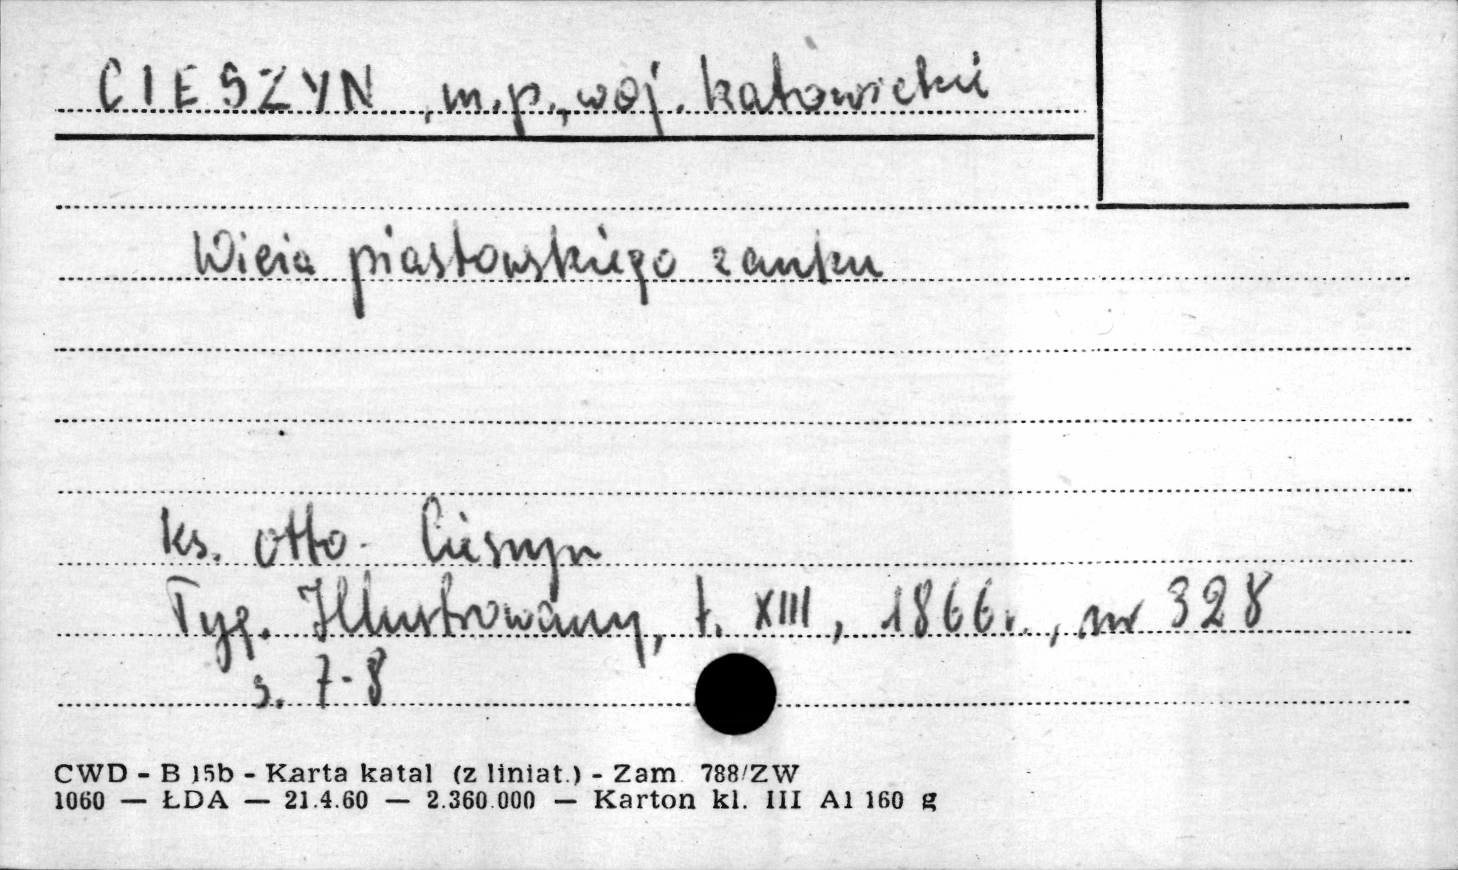 CIESZYN, m.p., woj. katowickie
Wieża piastowskiego zamku
ks. Otto. Cieszyn
Tyg. Illustrowany, t. XIII, 1866 r., nr 328
s. 7-8
CWD - B 15b - Karta katal (z liniat.) - Zam. 788/ZW
1060 — ŁDA — 21.4.60 — 2.360.000 — Karton kl. III A1 160 g